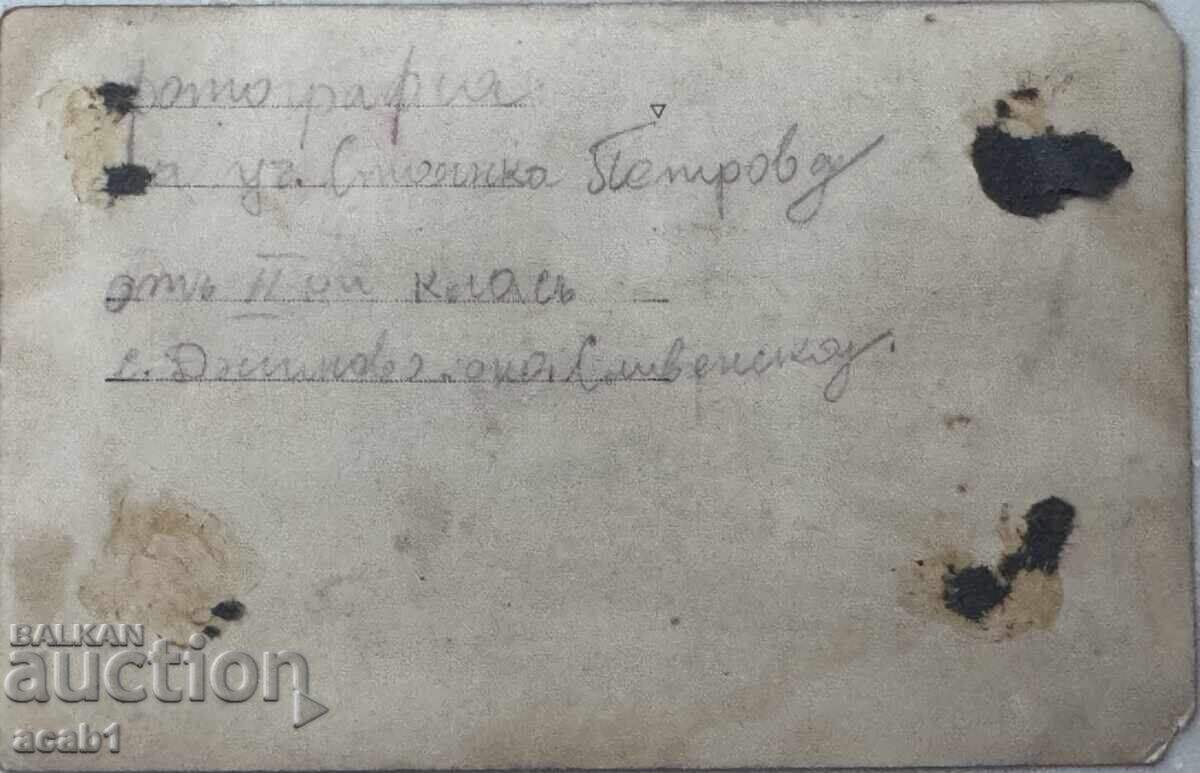 фотография
на уч. Стоянка Петрова
отъ II ой класъ
с. Сливенско.
BALKAN
auction
acab1